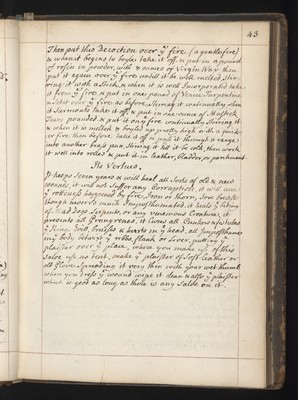 43
Then put this Decoction over ye fire (a gentle fire)
& when it begins to boyle take it off, & put in a pound
of rosin in powder, with 8 ounces of Virgin Wax then
put it again over ye fire untill it be well melted Stir-
ring it with a Stick, & when it is well Incorporated take
it from ye fire & put in one pound of Venice Turpentine
& Set it over ye fire as before, Stirring it continually when
it Surmounts take it off, & put in one ounce of Mastick
Tears pounded & put it on ye fire continually Stirring it
& when it is melted & boyles up pretty high with a quick
fire then before, take it off & pass it through a range
into another brass pan, Stirring it till it be cold, then work
it well into rolles & put it in leather, bladder, or parchment.
Its Vertues.
It keeps Seven years & will heal all Sorts of old & new
wounds, it will not Suffer any Corruption, it will cure
ye rottenness happened by fire, Iron or thorn, Sore breasts
though never so much Impostumated, it heals ye biting
of Mad dogs Serpents or any venemous Creature, it
prevents all Gangrenes, it Cures all Cankers & fistulas
ye Kings Evill, bruises & hurts in ye head, all Impostumes
in ye body betwixt ye ribbs, flank or liver, putting ye
plaister over ye place, where you make use of this
Salve use no tent, make ye plaister of Soft leather or
old Gloves Spreading it very thin with your wet thumb
when you dress ye wound wipe it clean & also ye plaister
which is good as long as there is any Salve on it.